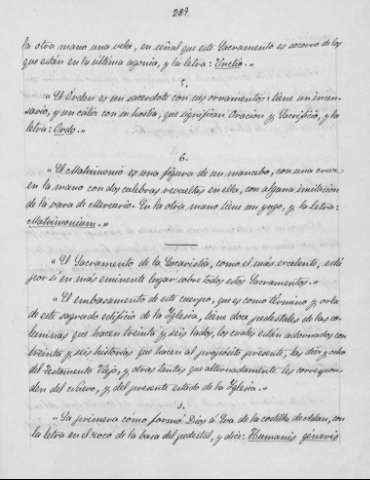 289.
la otra mano una vela, en señal que este Sacramento es socorro de los
que están en la última agonía, y la letra: Unctio.»
5.
«El Orden es un sacerdote con sus ornamentos: tiene un incen-
sario, y un cáliz con su hostia, que significan Oración y Sacrificio, y la
letra: Ordo.»
6.
«El Matrimonio es una figura de un mancebo, con una cruz
en la mano con dos culebras revueltas en ella, con alguna imitación
de la vara de Mercurio. En la otra mano tiene un yugo, y la letra:
Matrimonium.»
«El Sacramento de la Eucaristía, como el más excelente, está
por sí en más eminente lugar sobre todos estos Sacramentos.»
«El embasamento de este cuerpo, que es como término y orla
de este sagrado edificio de la Iglesia, tiene doce pedestales de las co-
lumnas que hacen treinta y seis lados, los cuales están adornados con
treinta y seis historias que hacen al propósito presente, las diez y ocho
del Testamento Viejo, y otras tantas que alternadamente les correspon-
den del Nuevo, y del presente estado de la Iglesia.»
1.
«La primera cómo formó Dios á Eva de la costilla de Adan, con
la letra en el zoco de la basa del pedestal, y dice: Humanis géneris